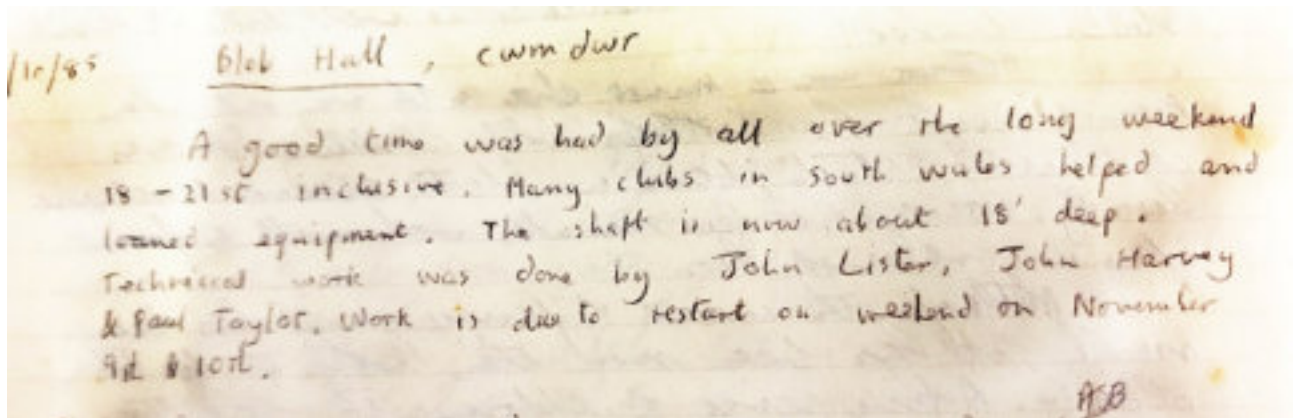 /10/85 Blob Hall, cwm dwr
A good time was had by all over the long weekend
18 - 21st inclusive. Many clubs in South Wales helped and
loaned equipment. The shaft is now about 18' deep.
Technical work was done by John Lister, John Harvey
& Paul Taylor. Work is due to restart on weekend on November
9th & 10th.
ASB